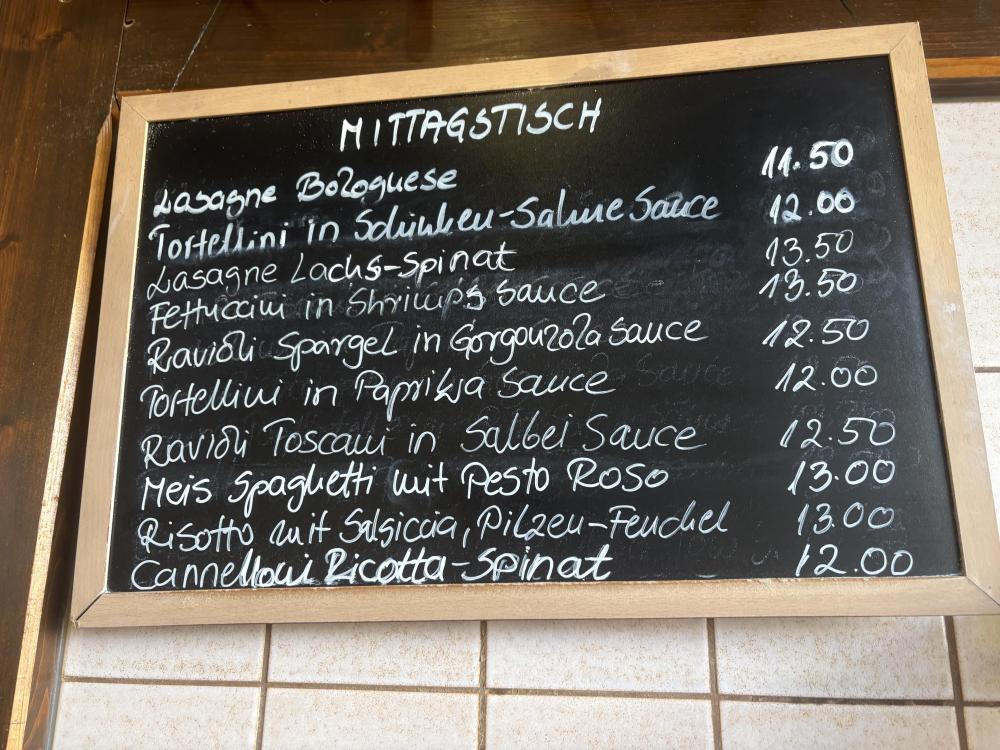 MITTAGSTISCH
Lasagne Bolognese 11.50
Tortellini in Schinken-Sahne Sauce 12.00
Lasagne Lachs-Spinat 13.50
Fettuccini in Shrimps Sauce 13.50
Ravioli Spargel in Gorgonzola Sauce 12.50
Tortellini in Paprika Sauce 12.00
Ravioli Toscani in Salbei Sauce 12.50
Meis Spaghetti mit Pesto Roso 13.00
Risotto mit Salsiccia, Pilzen-Fenchel 13.00
Cannelloni Ricotta-Spinat 12.00